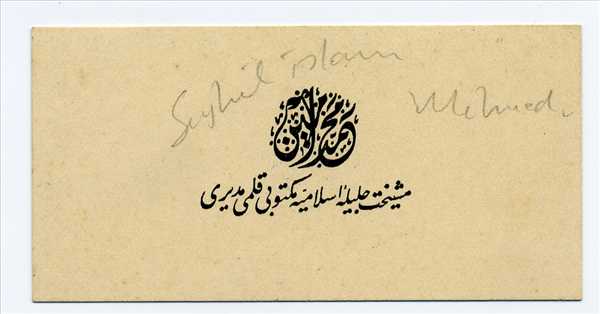 Seyhül islam
Mehmed
محمد امین
مشیخت جلیلهٔ اسلامیه مکتوبی قلمی مدیری